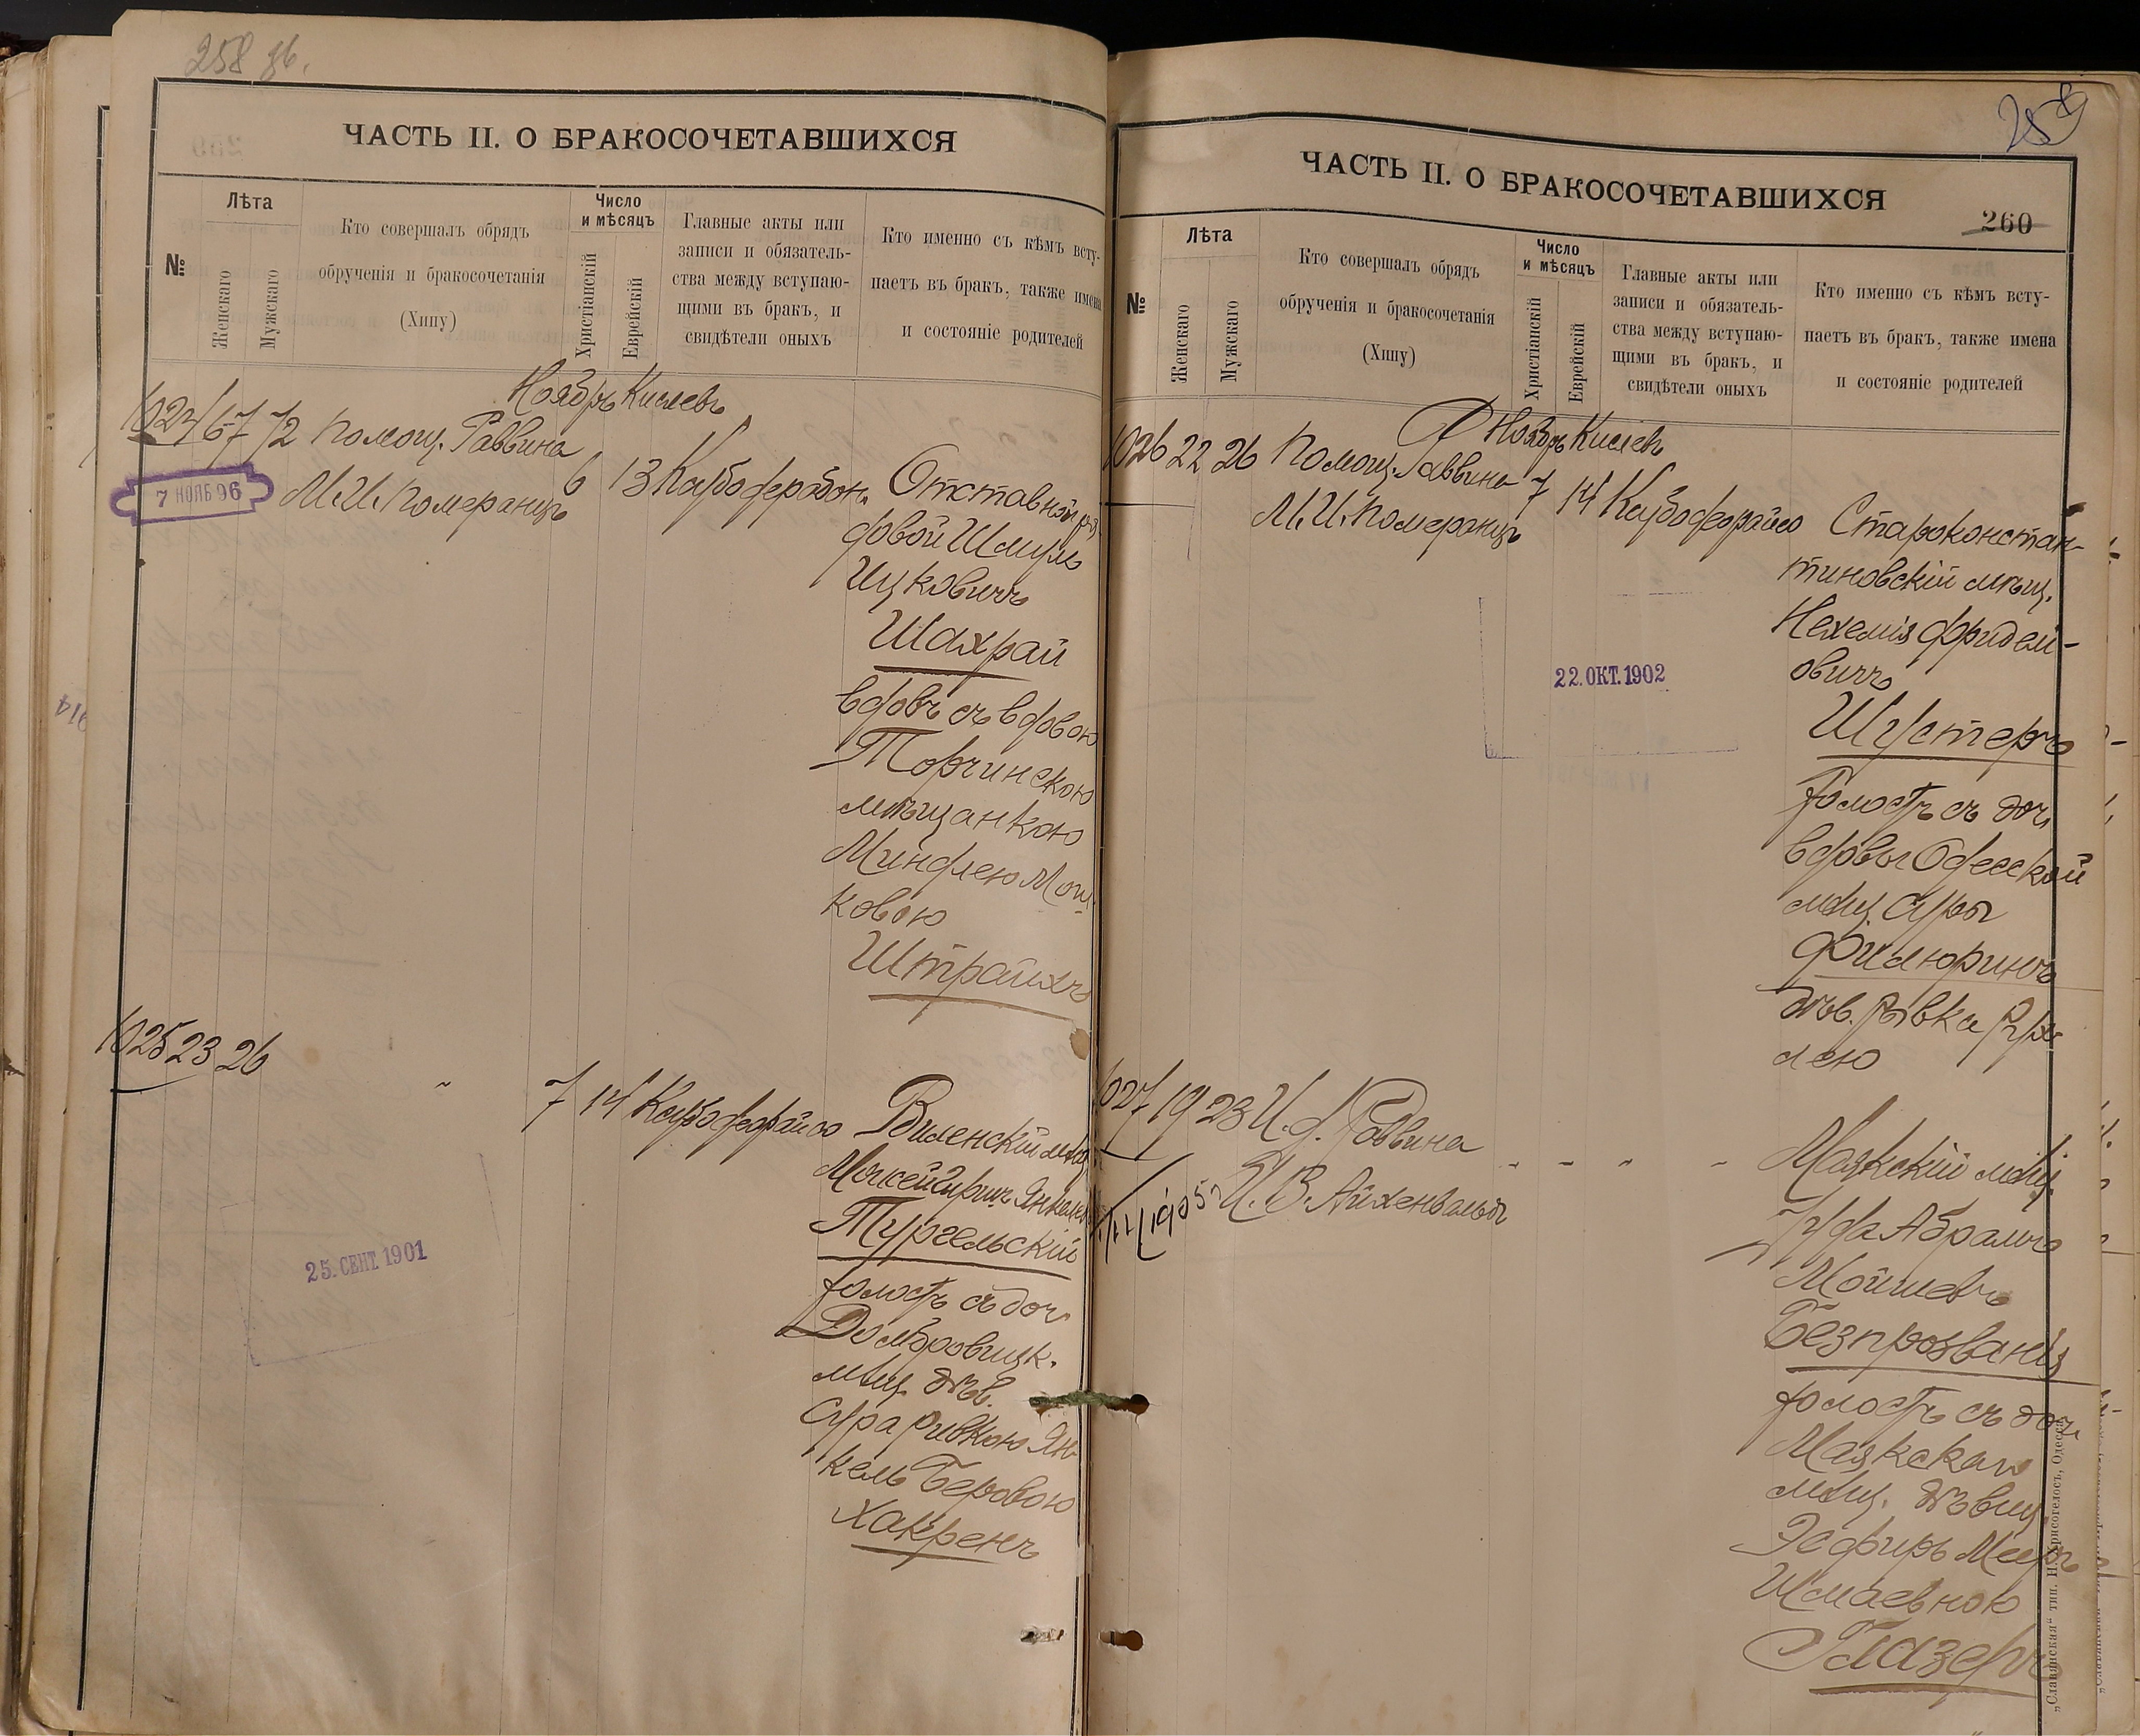 258 об.
ЧАСТЬ II. О БРАКОСОЧЕТАВШИХСЯ
№
Лѣта
Женскаго
Мужскаго
Кто совершалъ обрядъ
обрученія и бракосочетанія
(Хипу)
Число
и мѣсяцъ
Христіанскій
Еврейскій
Главные акты или
записи и обязатель-
ства между вступаю-
щими въ бракъ, и
свидѣтели оныхъ
Кто именно съ кѣмъ всту-
паетъ въ бракъ, также имена
и состояніе родителей
Ноябрь Кислевъ
1024 67 72 Помощ. Раввина
7 НОЯБ 96
М.И. Померанцъ
6 13 Отставной ря
довой Шмуль
Ицковичъ
Шахрай
вдовъ съ вдовою
Торчинскою
мѣщанкою
Миндлею Мош-
ковою
Штрайхъ
1025 23 26 " 7 14 Виленскій мѣщ
Янкель
Тургельскій
холостъ съ доч
Домбровицк.
мѣщ. дѣв.
Сура Ривкою Ян-
кель Беровою
Хакренъ
25. СЕНТ. 1901
259
ЧАСТЬ II. О БРАКОСОЧЕТАВШИХСЯ
260
№
Лѣта
Женскаго
Мужскаго
Кто совершалъ обрядъ
обрученія и бракосочетанія
(Хипу)
Число
и мѣсяцъ
Христіанскій
Еврейскій
Главные акты или
записи и обязатель-
ства между вступаю-
щими въ бракъ, и
свидѣтели оныхъ
Кто именно съ кѣмъ всту-
паетъ въ бракъ, также имена
и состояніе родителей
Ноябрь Кислевъ
1026 22 26 Помощ. Раввина 7 14
М.И. Померанцъ
Староконстан-
тиновскій мѣщ.
Нехемія Фридель-
овичъ
Шустеръ
холостъ съ доч
вдовы Одесской
мѣщ. Суры
Филюринъ
дѣв. Рывка Рух
лею
22. ОКТ. 1902
1027 19 23 И.д. Раввина
И.В. Айхенвальдъ
" " " "
Маякскій мѣщ.
Іуда Абрамъ
Мойшевъ
Безпрозванія
холостъ съ доч.
Маякскаго
мѣщ. дѣвиц
Эсфирь Меер
Шмаевною
Глазеръ
„Славянская“ тип. Н. Хрисогелосъ, Одесса